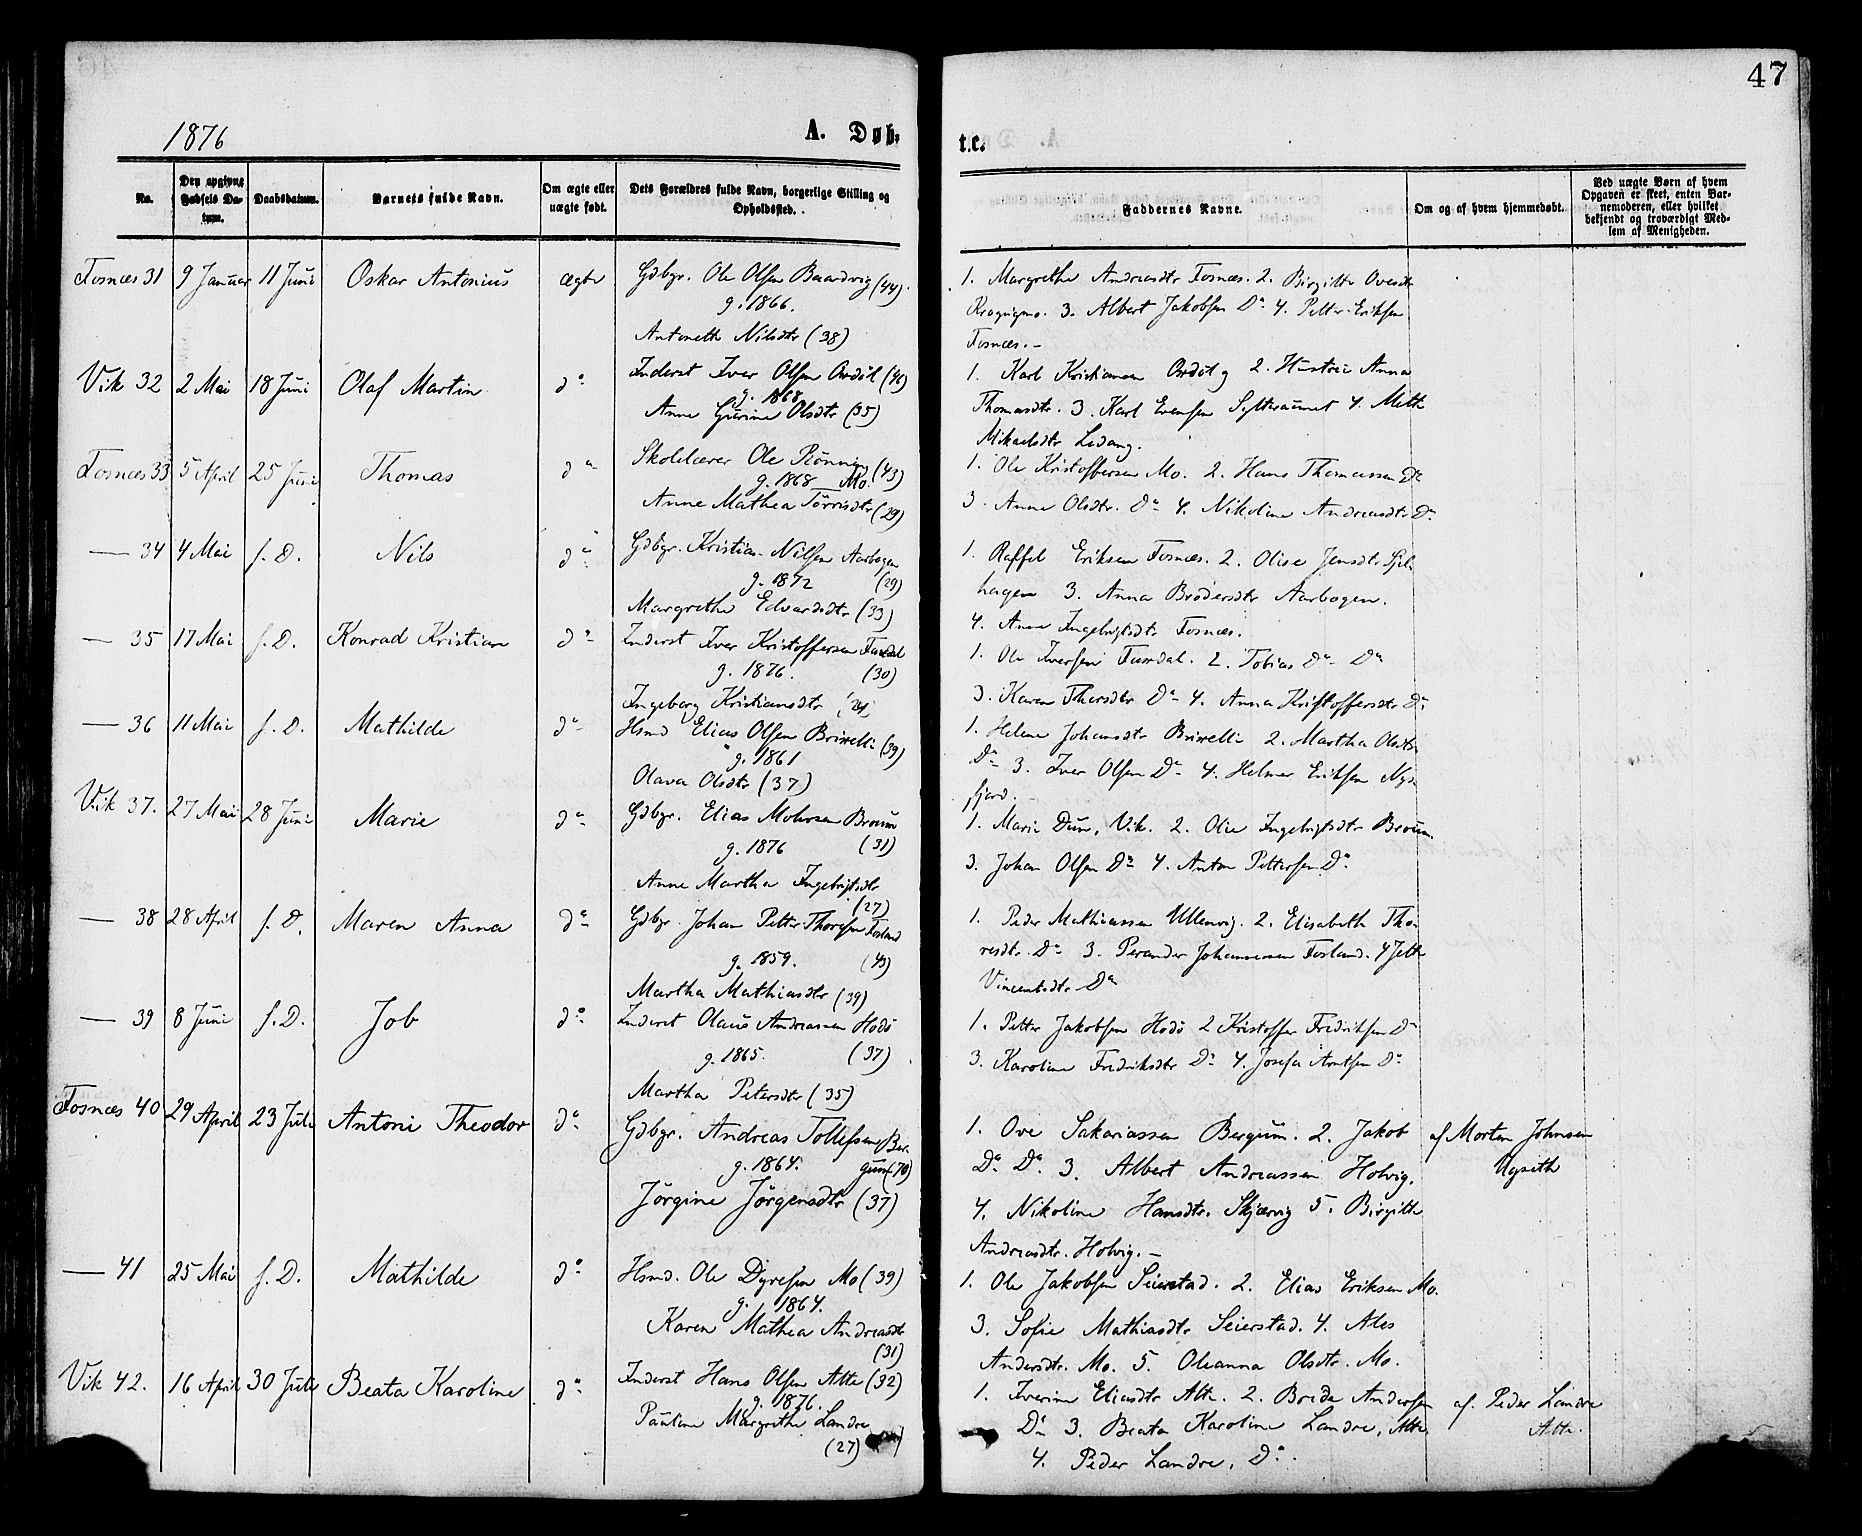 47
1876
A. Døb-
t.c.
No.
Den opgivne Fødsels Datum.
Daabsdatum.
Barnets fulde Navn.
Om ægte eller uægte født.
Dets Forældres fulde Navn, borgerlige Stilling og Opholdssted.
Faddernes Navne.
Om og af hvem hjemmedøbt.
Ved uægte Børn af hvem Opgaven er skeet, enten Barnemoderen, eller hvilket bekjendt og troværdigt Medlem af Menigheden.
Fosnæs 31 9 Januar 11 Juni Oskar Antonius ægte Gdbgr. Ole Olsen Baardvig (44).
g. 1866.
Antoneth Nilsdtr (38)
1. Margrethe Andreasdtr Fosnæs. 2. Birgitte Ovesdtr
3. Albert Jakobsen Do 4. Petter Eriksen
Fosnæs. -
Vik 32 2 Mai 18 Juni Olaf Martin do Inderst Iver Olsen
g. 1868
Anne Gurine Olsdtr (35)
1. Karl Kristiansen og 2. Hustru Anna
Thomasdtr. 3. Karl Evensen 4. Meth
Mikaelsdtr Ledang.
Fosnæs 33 5 April 25 Juni Thomas do Skolelærer Ole Rönning (43)
g. 1868 Mo.
Anne Mathea Törrisdtr (29)
1. Ole Kristoffersen Mo. 2. Hans Thomassen Do
3. Anne Olsdtr. Do 4. Nikoline Andreasdtr Do
— 34 4 Mai s. D. Nils do Gdbgr. Kristian Nilsen Aarbogen
g. 1872 (29)
Margrethe Edvardsdtr (33)
1. Raffel Eriksen Fosnæs. 2. Olise Jensdtr Spil-
hagen 3. Anna Brodersdtr Aarbogen.
4. Anne Ingebrigtsdtr Fosnæs.
— 35 17 Mai s. D. Konrad Kristian do Inderst Iver Kristoffersen Faxdal
g. 1876. (30)
Ingeborg Kristiansdtr
1. Ole Iversen 2. Tobias Do Do
3. Karen Thorsdtr Do 4. Anna Kristoffersdtr Do
— 36 11 Mai s. D. Mathilde do Hsmd Elias Olsen Brivelli (39)
g. 1861
Olava Olsdtr (37)
1. Helene Johansdtr Brivelli 2. Martha Olsdtr
Do 3. Iver Olsen Do 4. Helmer Eriksen
fjord.
Vik 37. 27 Mai 28 Juni Marie do Gdbgr. Elias Mohrsen Broum
g. 1876 (31)
Anne Martha Ingebrigtsdtr
(27)
1. Marie Dun, Vik. 2. Olie Ingebrigtsdtr Broum.
3. Johan Olsen Do 4. Anton Pettersen Do
— 38 28 April s. D. Maren Anna do Gdbgr. Johan Petter Thoresen Fosland
g. 1859. (43)
Martha Mathiasdtr (39)
1. Peder Mathiassen Ullenvig. 2. Elisabeth Tho-
resdtr. Do 3. Perander Johannesen Fosland. 4 Jette
Vincentsdtr Do
— 39 8 Juni s. D. Job do Inderst Olaus Andreassen Hodö
g. 1865. (37)
Martha Petersdtr (35)
1. Petter Jakobsen Hodö 2 Kristoffer Fredriksen Do
3. Karoline Fredriksdtr Do 4. Josefa Arntsen Do
Fosnæs 40 29 April 23 Juli Antoni Theodor do Gdbgr. Andreas Tollefsen Ber-
g. 1864. gum (70)
Jörgine Jörgensdtr (37)
1. Ove Sakariassen Bergum. 2. Jakob
Do Do 3. Albert Andreassen Holvig.
4. Nikoline Hansdtr. Skjærvig 5. Birgitte
Andreasdtr. Holvig. —
af Morten Johnsen
— 41 25 Mai s. D. Mathilde do Hsmd. Ole Dyresen Mo (39)
g. 1864.
Karen Mathea Andreasdtr
(31)
1. Ole Jakobsen Seierstad. 2. Elias Eriksen Mo.
3. Sofie Mathiasdtr Seierstad. 4. Ales
Andersdtr. Mo. 5. Oleanna Olsdtr. Mo.
Vik 42. 16 April 30 Juli Beata Karoline do Inderst Hans Olsen Alte (32)
g. 1876.
Pauline Margrethe Landre
(27)
1. Iverine Eliasdtr Alte. 2. Brede Andersen
Do 3. Beata Karoline Landre, Alte
4. Peder Landre, Do.
af. Peder Landre
Alte.